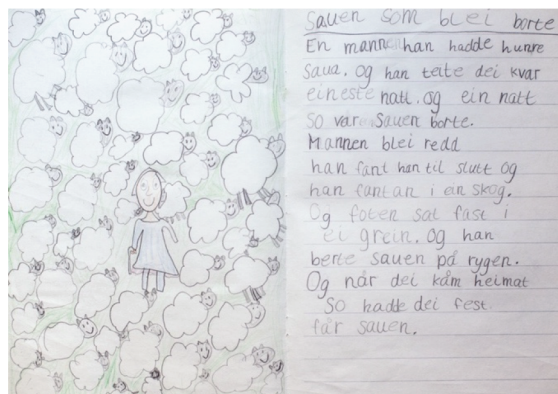 Sauen som blei borte
En mann han hadde hunre
saua. Og han telte dei kvar
eineste natt. og ein natt
so var sauen borte.
Mannen blei redd
han fant han til slutt og
han fant an i ein skog.
Og foten sat fast i
ei grein. Og han
berte sauen på rygen.
Og når dei kåm heimat
So hadde dei fest
får sauen.